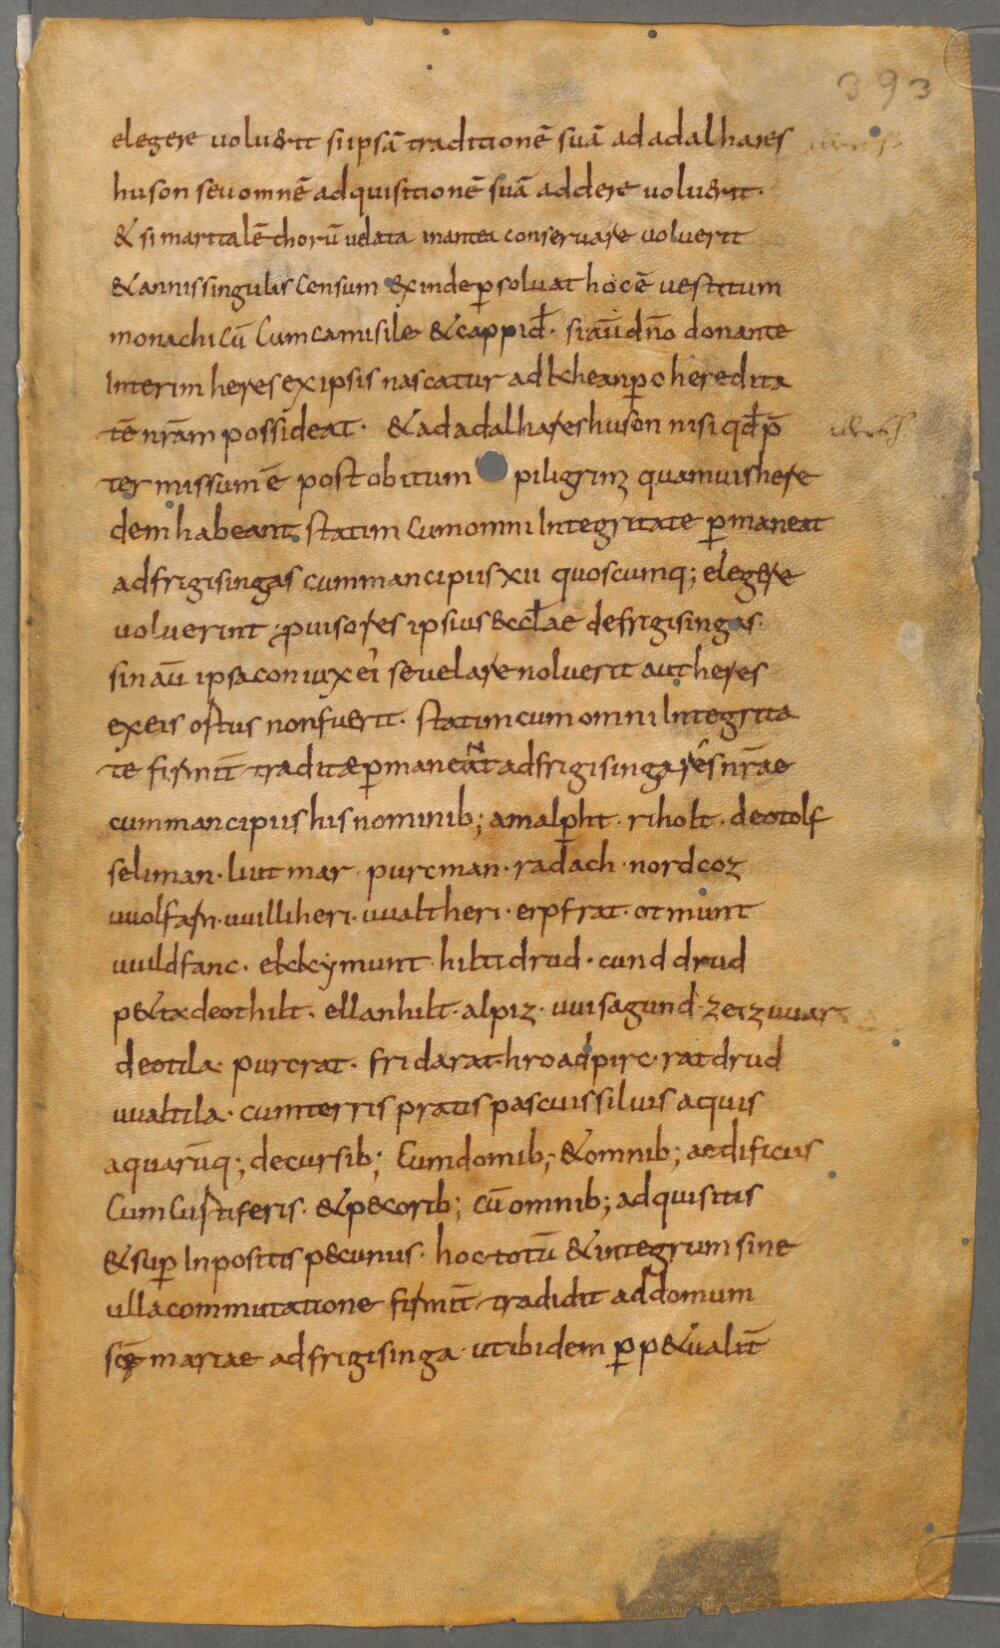 393
elegere uolu&rit si ipsā traditionē suā ad adalhares
huson seu omnē adquisitionē suā addere uolu&rit.
& si maritalē thorū uelata inantea conseruare uoluerit
& annis singulis Censum exinde ꝑsoluat hoc ē uestitum
monachicū Cum camisile & cappid̄. si aū dn̄o donante
Interim heres ex ipsis nascatur ad kheanpo heredita
tē nr̄am possideat. & ad adalhareshuson nisi qđ p̄
ter missum ē post obitum piligrimz quamuis here
dem habeant statim Cum omni Integritate ꝑmaneat
ad frigisingas cum mancipiis xii quoscumq; elegere
uoluerint ꝓuisores ipsius &ccłae de frigisingas.
sin aū ipsa coniux ei se uelare noluerit aut heres
ex eis ostus non fuerit. statim cum omni Integrita
te firmit̄ traditæ ꝑmaneant ad frigisinga res nr̄ae
cum mancipiis his nominib; amalꝑht. riholt. deotolf
seliman. liutmar. purcman. radach. nordcoz
uuolfarn. uuilliheri. uualtheri. erpfrat. otmunt
uuildfanc. ekkymunt. hiltidrud. cunddrud
p&ta deothilt. ellanhilt. alpiz. uuisagund. zeizuuar
deotila. purcrat. fridarat. hroadpirc. ratdrud
uualtila. cum terris pratis pascuis siluis aquis
aquarūq; decursib; Cum domib; & omnib; aedificiis
Cum Custiferis. & p&corib; cū omnib; adquisitis
& suꝑ Inpositis p&cuniis. hoc totū & integrum sine
ulla commutatione firmit̄ tradidit ad domum
sc̄ę mariae ad frigisinga ut ibidem ꝑp&ualit̄